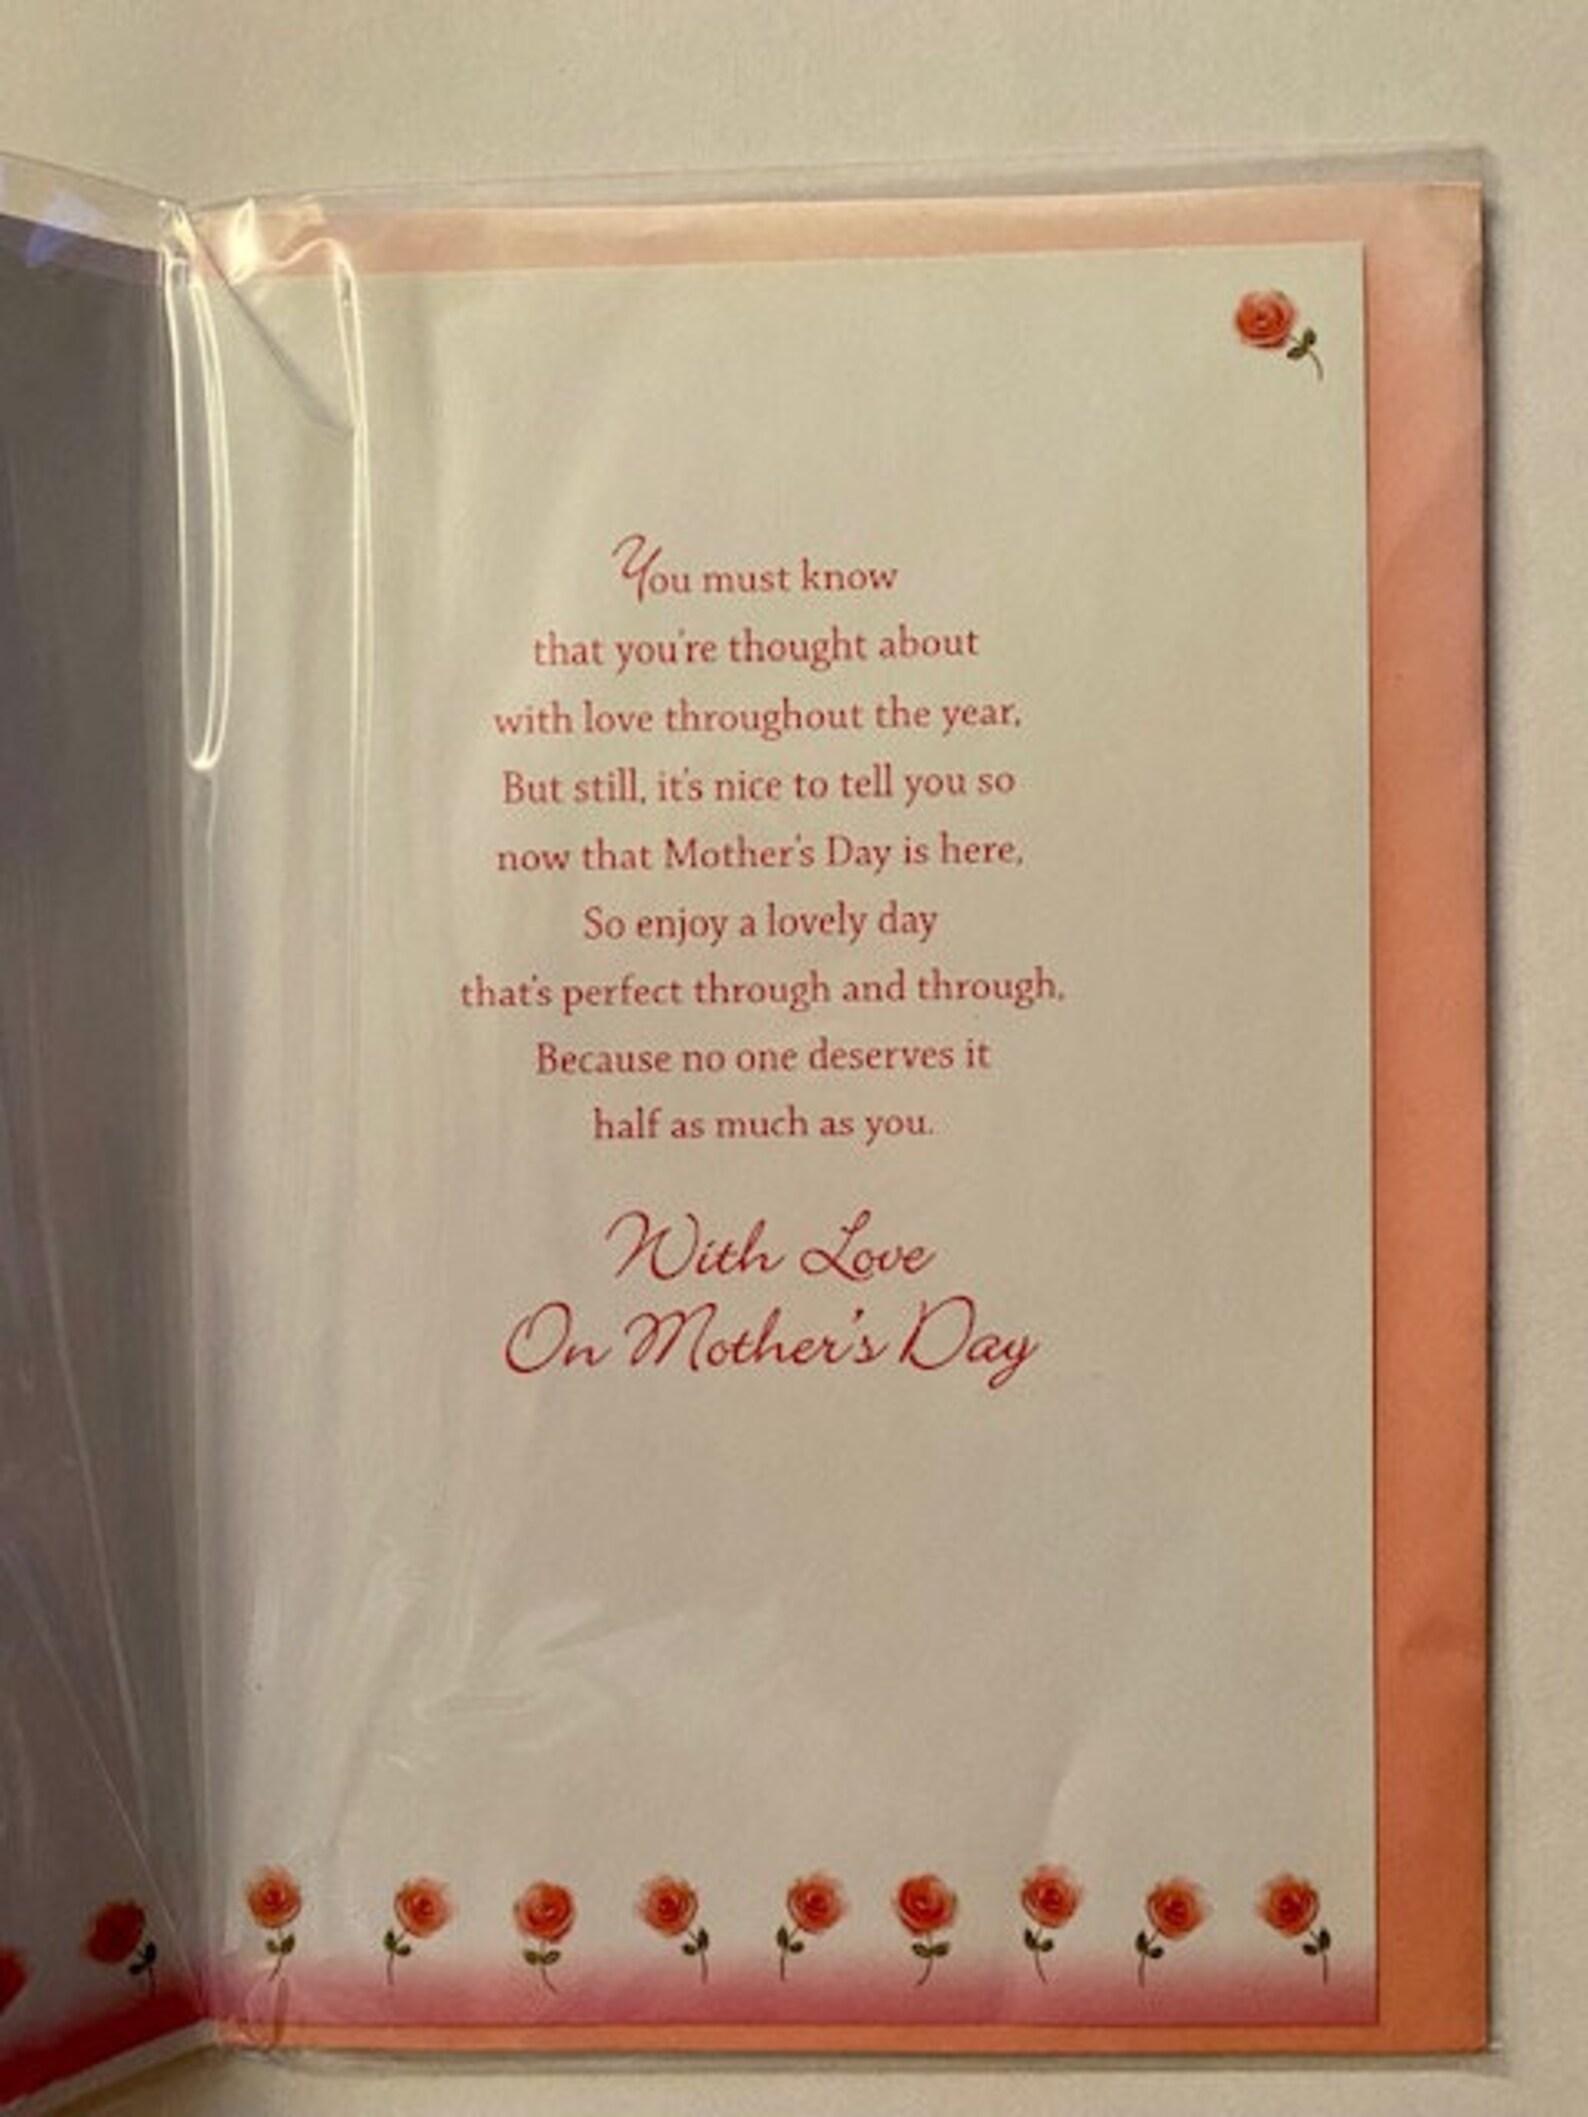 You must know
that you're thought about
with love throughout the year,
But still, it's nice to tell you so
now that Mother's Day is here,
So enjoy a lovely day
that's perfect through and through,
Because no one deserves it
half as much as you.
With Love
On Mother's Day